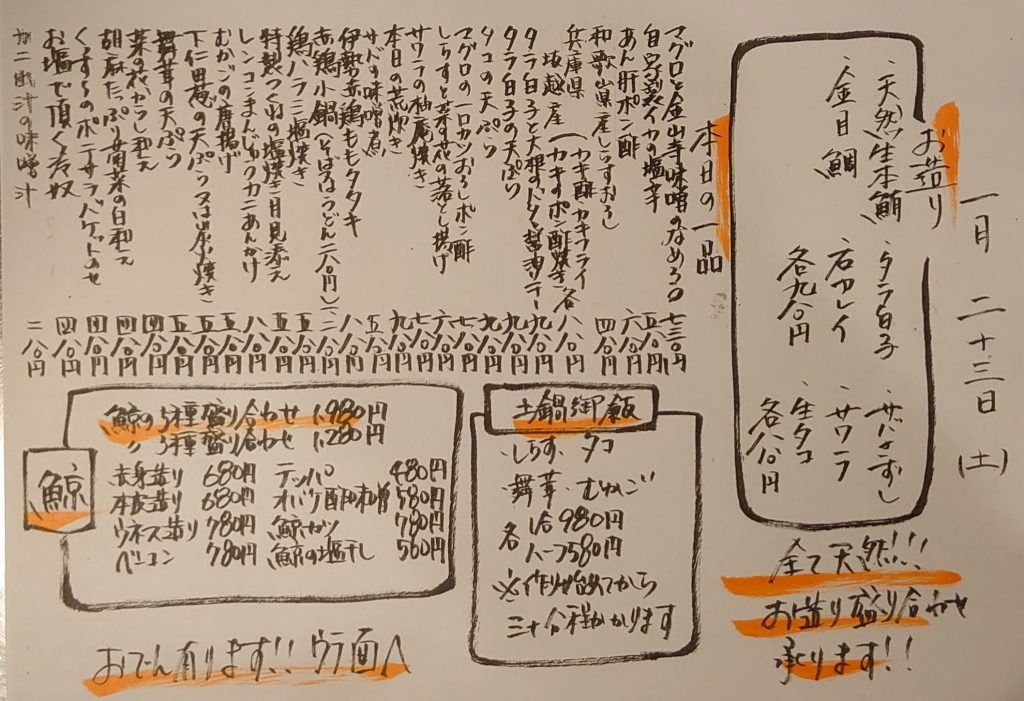 一月 二十三日 (土)
お造り
・天然生本鮪 ・タラ白子 ・サバきずし
・金目鯛 ・石カレイ ・サワラ
・生タコ
各九八〇円 各八八〇円
全て天然!!!
お造り盛り合わせ
承ります!!
本日の一品
マグロと金山寺味噌のなめろう 七三〇円
自家製イカの塩辛 五八〇円
あん肝ポン酢 六八〇円
和歌山県産しらすおろし 四八〇円
兵庫県 坂越産 (カキ酢 カキフライ カキのポン酢焼き) 各八八〇円
タラ白子と大根のバター醤油ソテー 九八〇円
タラ白子の天ぷら 九八〇円
タコの天ぷら 九八〇円
マグロの一口カツおろしポン酢 七八〇円
しらすと菜の花の落とし揚げ 六八〇円
サワラの柚庵焼き 七八〇円
本日の荒炊き 九八〇円
サバの味噌煮
伊勢赤鶏ももタタキ
赤鶏小鍋(そば又はうどん二八〇円)
鶏ハラミ塩焼き 五八〇円
特製つくねの塩焼き 月見添え 五八〇円
レンコンまんじゅうカニあんかけ 八八〇円
むかごの唐揚げ 五八〇円
下仁田葱の天ぷら又は炭焼き 五八〇円
舞茸の天ぷら 五八〇円
菜の花からし和え 四八〇円
胡麻たっぷり菊菜の白和え 四八〇円
くずし ポテサラバケットのせ 四八〇円
お塩で頂く冷奴 四八〇円
の味噌汁 二八〇円
土鍋御飯
・しらす ・タコ
・舞茸 ・むかご
各 1合 980円
ハーフ580円
※作り始めてから
三十分程かかります
鯨
鯨の5種盛り合わせ 1,980円
〃 3種盛り合わせ 1,280円
赤身造り 680円 テッパ 480円
本皮造り 680円 オバケ酢味噌 580円
ウネス造り 780円 鯨カツ 780円
ベーコン 780円 鯨の塩干し 560円
おでん有ります!! ウラ面へ